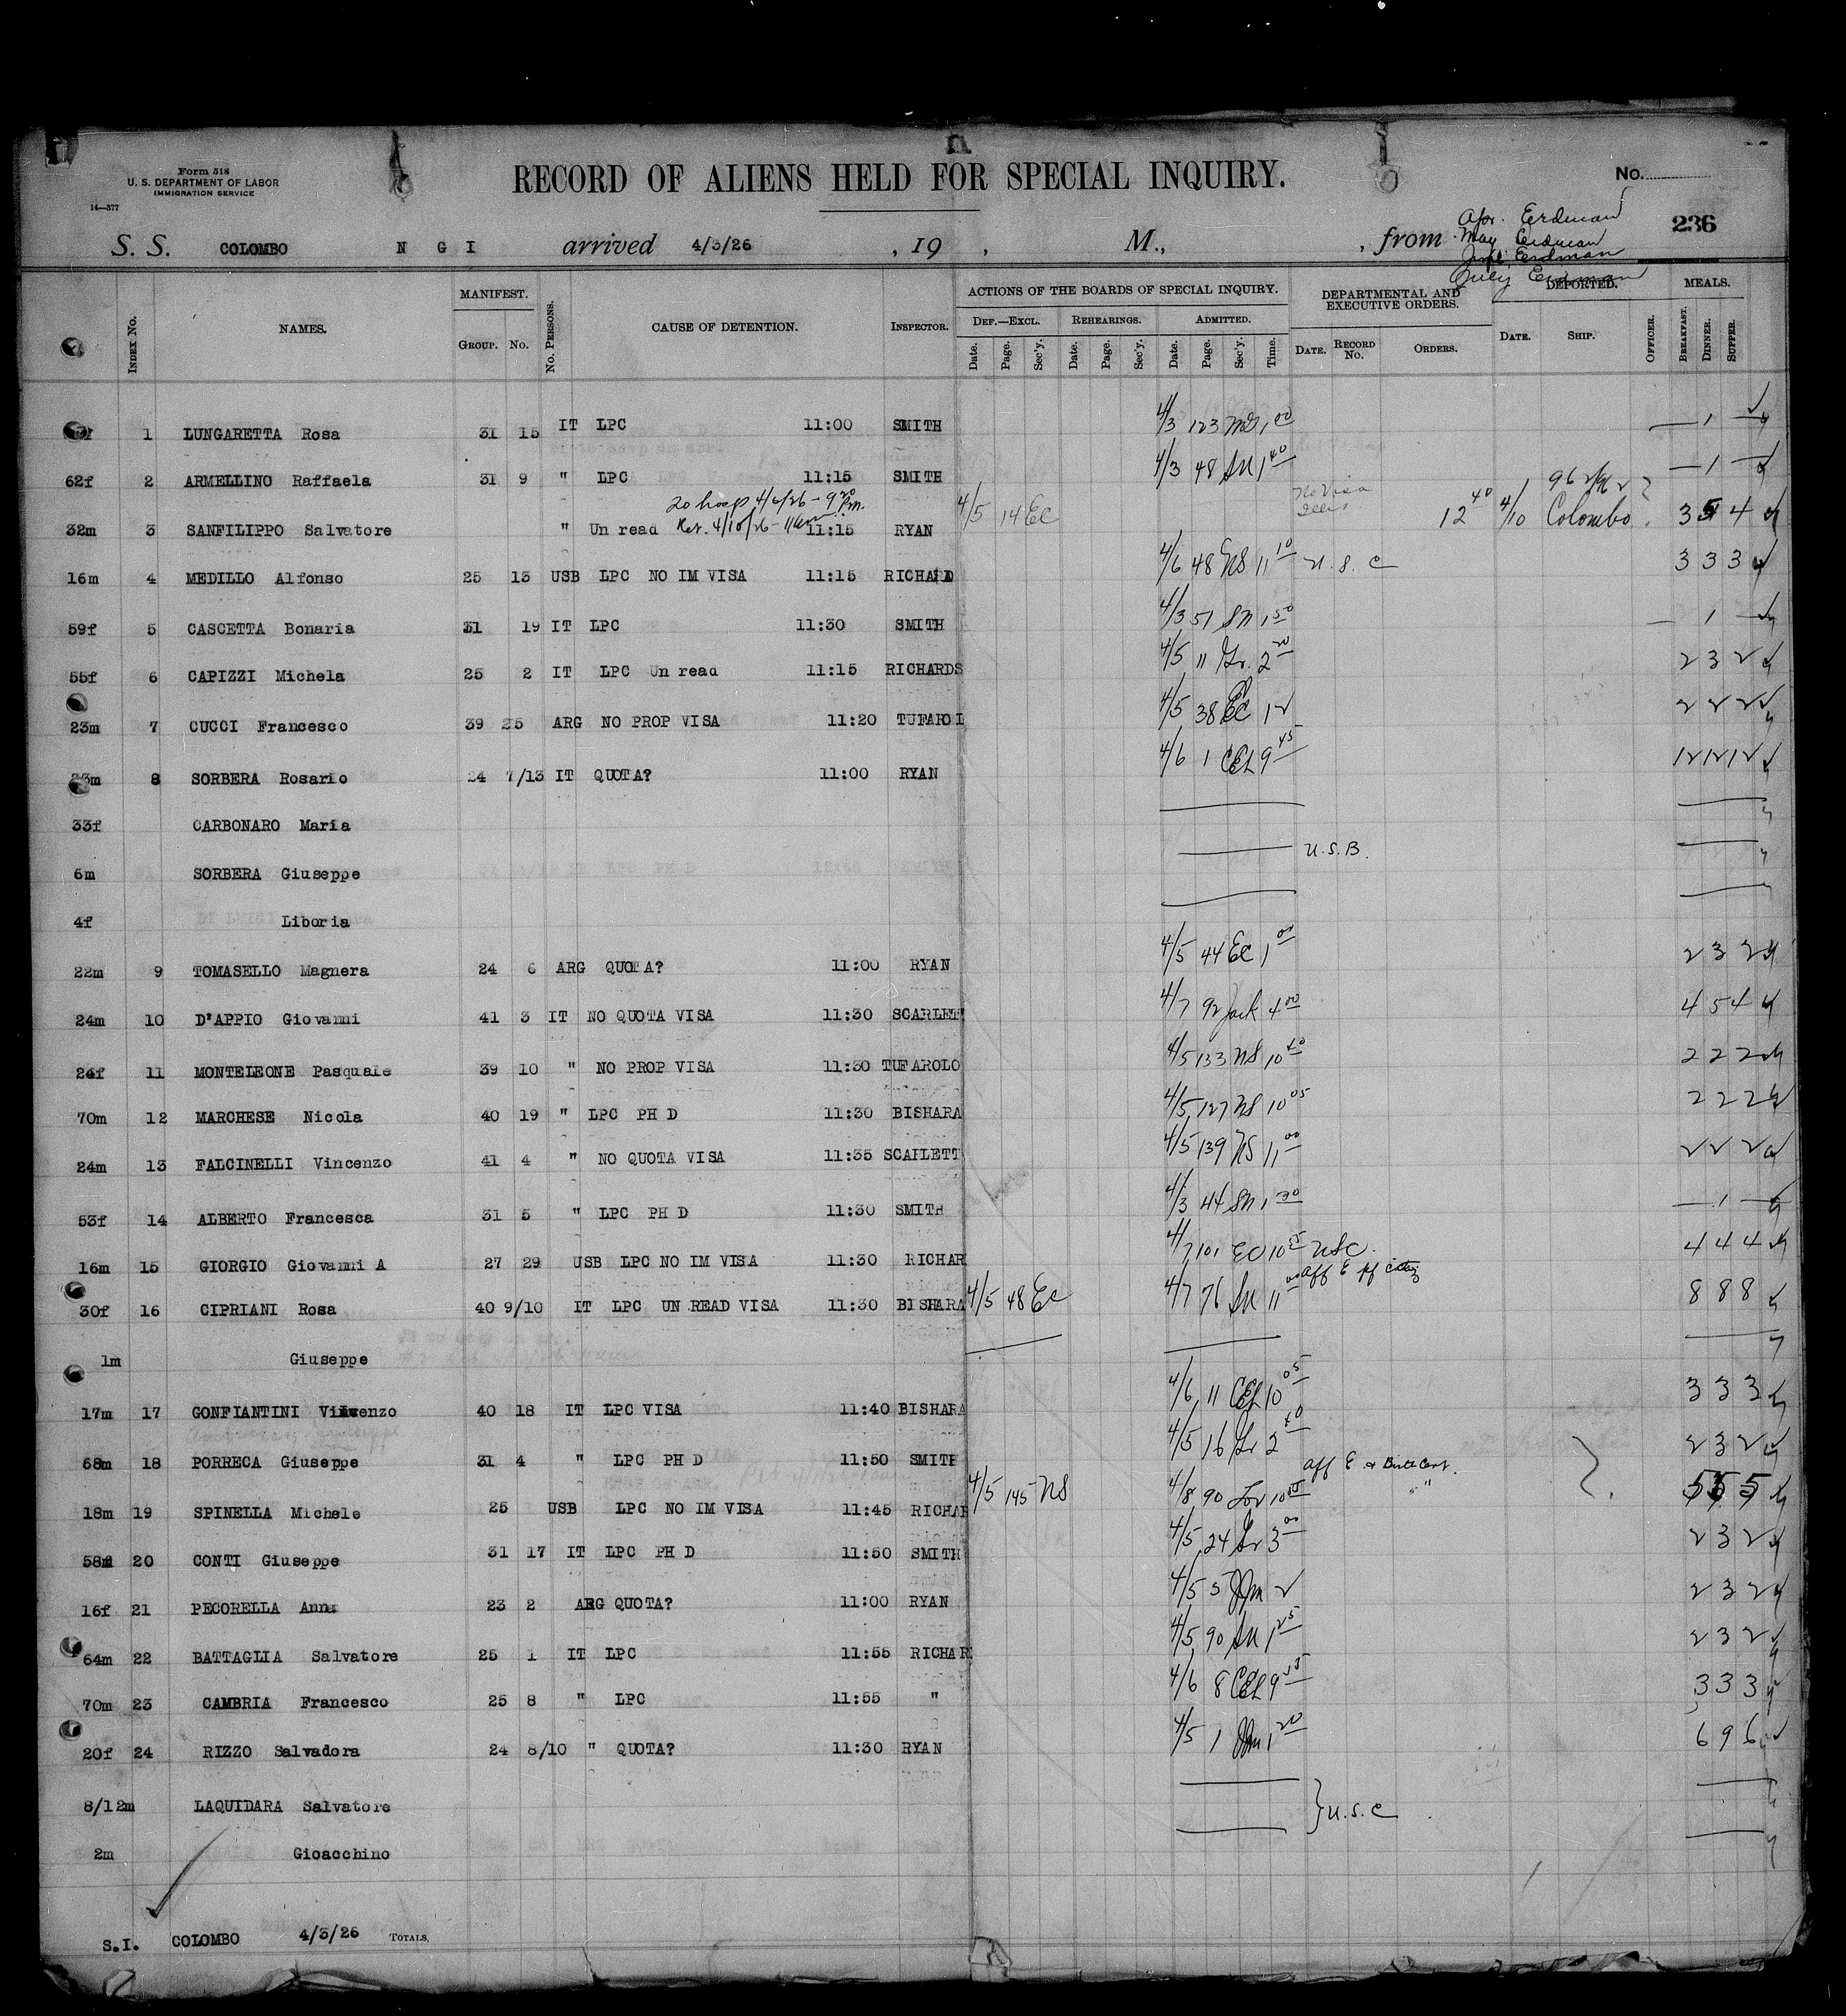 Form 518
U. S. DEPARTMENT OF LABOR
IMMIGRATION SERVICE
14—377
RECORD OF ALIENS HELD FOR SPECIAL INQUIRY.
No.
236
Apr. Erdman
May Erdman
June Erdman
July Erdman
S. S. COLOMBO N G I arrived 4/3/26 , 19 , M., , from
INDEX No. NAMES. MANIFEST. GROUP. No. No. PERSONS. CAUSE OF DETENTION. INSPECTOR. ACTIONS OF THE BOARDS OF SPECIAL INQUIRY. DEF.—EXCL. Date. Page. Sec'y. REHEARINGS. Date. Page. Sec'y. ADMITTED. Date. Page. Sec'y. Time. DEPARTMENTAL AND EXECUTIVE ORDERS. DATE. RECORD No. ORDERS. DEPORTED. DATE. SHIP. OFFICER. MEALS. BREAKFAST. DINNER. SUPPER.
1 LUNGARETTA Rosa 31 15 IT LPC 11:00 SMITH 4/3 123 1 00 — 1 —
62f 2 ARMELLINO Raffaela 31 9 " LPC 11:15 SMITH 4/3 48 SM 1 40 — 1 —
To hosp 4/6/26 - 9 20 Pm.
32m 3 SANFILIPPO Salvatore " Un read Ret. 4/10/26 - 11:15 RYAN 4/5 14 EC No Visa 12 40 4/10 Colombo 3 5 4
16m 4 MEDILLO Alfonso 25 13 USB LPC NO IM VISA 11:15 RICHARD 4/6 48 NS 11 10 U.S.C 3 3 3
59f 5 CASCETTA Bonaria 31 19 IT LPC 11:30 SMITH 4/3 51 SM 1 50 — 1 —
55f 6 CAPIZZI Michela 25 2 IT LPC Un read 11:15 RICHARDS 4/5 11 Gr. 2 20 2 3 2
23m 7 CUCCI Francesco 39 25 ARG NO PROP VISA 11:20 TUFAROL 4/5 38 EC 12 2 2 2
33m 8 SORBERA Rosario 24 7/13 IT QUOTA? 11:00 RYAN 4/6 1 CEL 9 45 12 12 12
33f CARBONARO Maria
6m SORBERA Giuseppe U.S.B.
4f Liboria
22m 9 TOMASELLO Magnera 24 6 ARG QUOTA? 11:00 RYAN 4/5 44 EC 1 00 2 3 2
24m 10 D'APPIO Giovanni 41 3 IT NO QUOTA VISA 11:30 SCARLETT 4/7 92 Jack 4 00 4 5 4
24f 11 MONTELEONE Pasquale 39 10 " NO PROP VISA 11:30 TUFAROLO 4/5 133 NS 10 40 2 2 2
70m 12 MARCHESE Nicola 40 19 " LPC PH D 11:30 BISHARA 4/5 127 NS 10 05 2 2 2
24m 13 FALCINELLI Vincenzo 41 4 " NO QUOTA VISA 11:35 SCARLETT 4/5 139 NS 11 00 2 2 2
53f 14 ALBERTO Francesca 31 5 " LPC PH D 11:30 SMITH 4/3 44 SM 1 30 — 1 —
16m 15 GIORGIO Giovanni A 27 29 USB LPC NO IM VISA 11:30 RICHAR 4/7 101 EC 10 25 USC. 4 4 4
30f 16 CIPRIANI Rosa 40 9/10 IT LPC UN READ VISA 11:30 BISHARA 4/5 48 EC 4/7 76 SM 11 00 aff E 8 8 8
1m Giuseppe
17m 17 GONFIANTINI Vincenzo 40 18 IT LPC VISA 11:40 BISHARA 4/6 11 CEL 10 05 3 3 3
68m 18 PORRECA Giuseppe 31 4 " LPC PH D 11:50 SMITH 4/5 16 Gr 2 40 2 3 2
18m 19 SPINELLA Michele 25 USB LPC NO IM VISA 11:45 RICHAR 4/5 145 NS 4/8 90 10 05 aff E & Birth Cert. 5 5 5
58m 20 CONTI Giuseppe 31 17 IT LPC PH D 11:50 SMITH 4/5 24 Gr 3 00 2 3 2
16f 21 PECORELLA Anna 23 2 ARG QUOTA? 11:00 RYAN 4/5 5 2 2 3 2
64m 22 BATTAGLIA Salvatore 25 1 IT LPC 11:55 RICHAR 4/5 90 SM 1 25 2 3 2
70m 23 CAMBRIA Francesco 25 8 " LPC 11:55 " 4/6 8 CEL 9 55 3 3 3
20f 24 RIZZO Salvadora 24 8/10 " QUOTA? 11:30 RYAN 4/5 1 1 20 6 9 6
8/12m LAQUIDARA Salvatore } U.S.C
2m Gioacchino
S.I. COLOMBO 4/3/26 TOTALS,